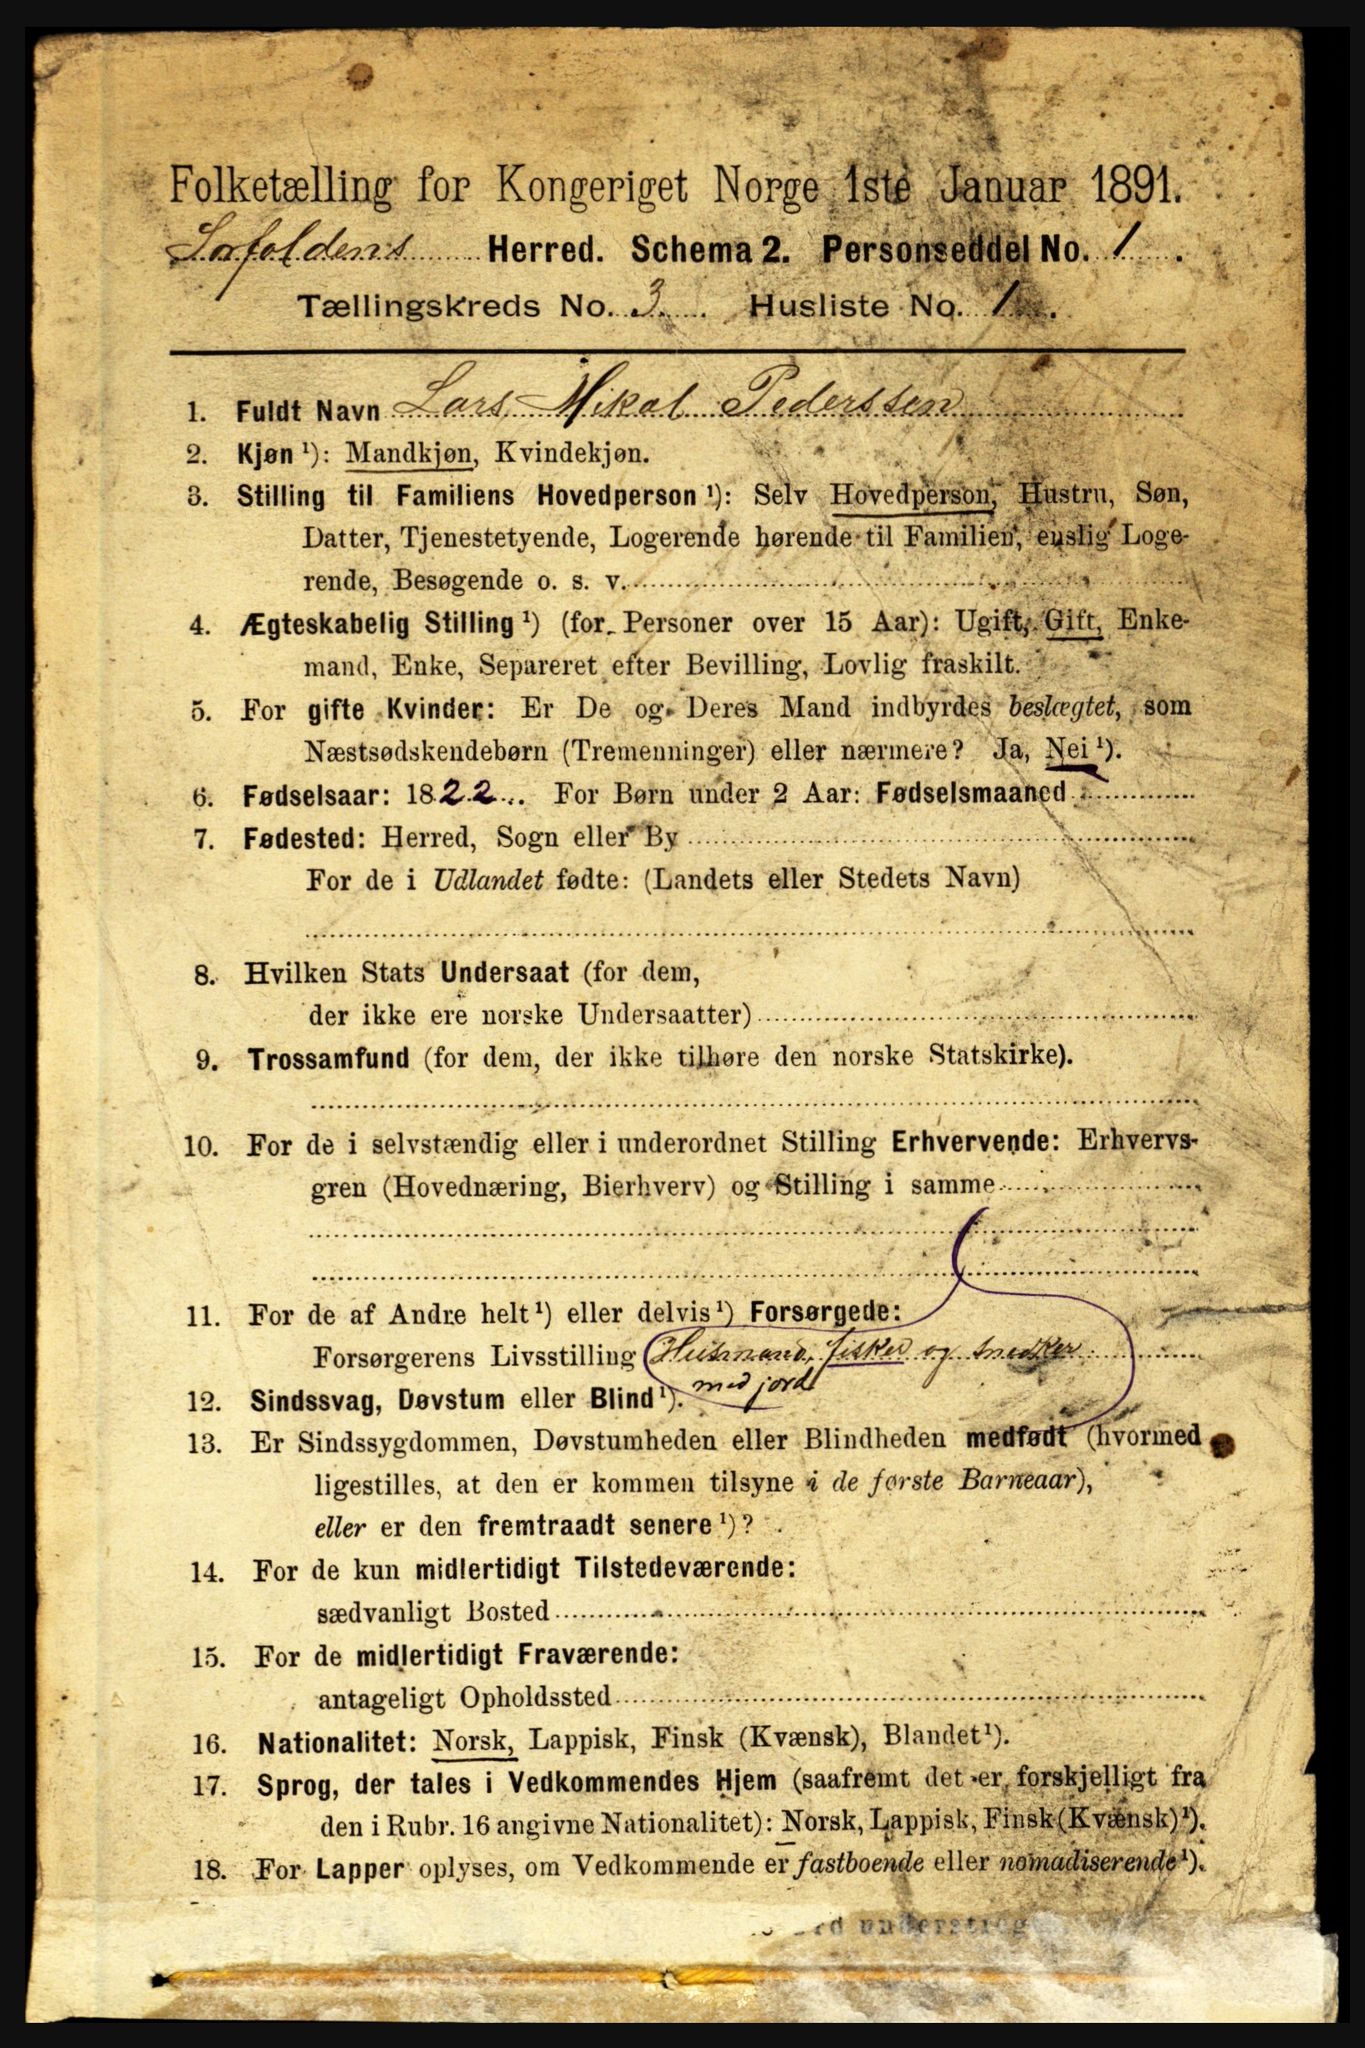 Folketælling for Kongeriget Norge 1ste Januar 1891.
Sorfoldens Herred. Schema 2. Personseddel No. 1.
Tællingskreds No. 3. Husliste No. 1.
1. Fuldt Navn Lars Mikal Pederssen
2. Kjøn ¹): Mandkjøn, Kvindekjøn.
3. Stilling til Familiens Hovedperson ¹): Selv Hovedperson, Hustru, Søn,
Datter, Tjenestetyende, Logerende hørende til Familien, enslig Loge-
rende, Besøgende o. s. v.
4. Ægteskabelig Stilling ¹) (for Personer over 15 Aar): Ugift, Gift, Enke-
mand, Enke, Separeret efter Bevilling, Lovlig fraskilt.
5. For gifte Kvinder: Er De og Deres Mand indbyrdes beslægtet, som
Næstsødskendebørn (Tremenninger) eller nærmere? Ja, Nei ¹).
6. Fødselsaar: 1822. For Børn under 2 Aar: Fødselsmaaned
7. Fødested: Herred, Sogn eller By
For de i Udlandet fødte: (Landets eller Stedets Navn)
8. Hvilken Stats Undersaat (for dem,
der ikke ere norske Undersaatter)
9. Trossamfund (for dem, der ikke tilhøre den norske Statskirke).
10. For de i selvstændig eller i underordnet Stilling Erhvervende: Erhvervs-
gren (Hovednæring, Bierhverv) og Stilling i samme
11. For de af Andre helt ¹) eller delvis ¹) Forsørgede:
Forsørgerens Livsstilling Husmand, fisker og snedker
med jord
12. Sindssvag, Døvstum eller Blind ¹).
13. Er Sindssygdommen, Døvstumheden eller Blindheden medfødt (hvormed
ligestilles, at den er kommen tilsyne i de første Barneaar),
eller er den fremtraadt senere ¹)?
14. For de kun midlertidigt Tilstedeværende:
sædvanligt Bosted
15. For de midlertidigt Fraværende:
antageligt Opholdssted
16. Nationalitet: Norsk, Lappisk, Finsk (Kvænsk), Blandet ¹).
17. Sprog, der tales i Vedkommendes Hjem (saafremt det er forskjelligt fra
den i Rubr. 16 angivne Nationalitet): Norsk, Lappisk, Finsk (Kvænsk) ¹).
18. For Lapper oplyses, om Vedkommende er fastboende eller nomadiserende ¹).